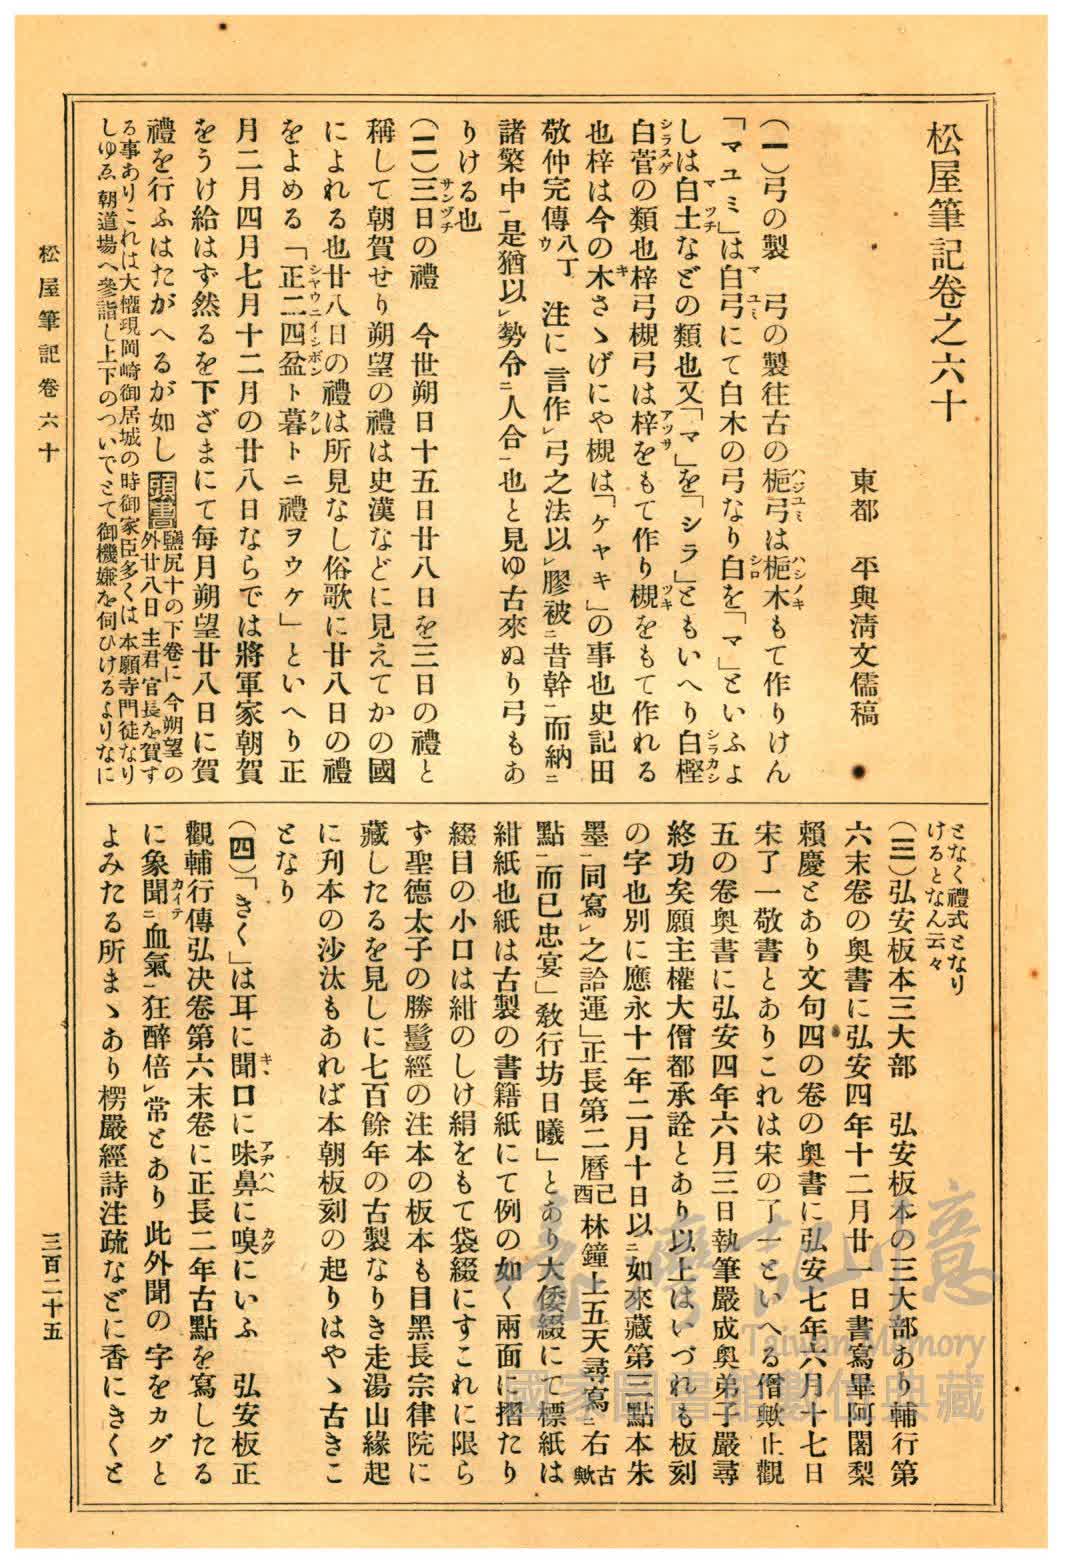 松屋筆記卷之六十
東都 平與淸文儒稿
(一)弓の製 弓の製往古の梔弓は梔木もて作りけん
ハジユミ ハシノキ
「マユミ」は白弓にて白木の弓なり白を「マ」といふよ
マユミ シロ
しは白土などの類也又「マ」を「シラ」ともいへり白樫
マツチ シラカシ
白菅の類也梓弓槻弓は梓をもて作り槻をもて作れる
シラスゲ アツサ ツキ
也梓は今の木さゝげにや槻は「ケヤキ」の事也史記田
キ
敬仲完傳八丁ウ 注に言作レ弓之法以レ膠被ニ昔幹一而納ニ
諸檠中一是猶以レ勢令ニ人合一也と見ゆ古來ぬり弓もあ
りける也
(二)三日の禮 今世朔日十五日廿八日を三日の禮と
サンヅチ
稱して朝賀せり朔望の禮は史漢などに見えてかの國
によれる也廿八日の禮は所見なし俗歌に廿八日の禮
をよめる「正二四盆ト暮トニ禮ヲウケ」といへり正
シヤウニイシボン クレ
月二月四月七月十二月の廿八日ならでは將軍家朝賀
をうけ給はず然るを下ざまにて每月朔望廿八日に賀
禮を行ふはたがへるが如し 頭書 鹽尻十の下卷に今朔望の
外廿八日主君官長を賀す
る事ありこれは大權現岡崎御居城の時御家臣多くは本願寺門徒なり
しゆゑ朝道場へ參詣し上下のついでとて御機嫌を伺ひけるよりなに
となく禮式となり
けるとなん云々
(三)弘安板本三大部 弘安板本の三大部あり輔行第
六末卷の奧書に弘安四年十二月廿一日書寫畢阿闍梨
賴慶とあり文句四の卷の奧書に弘安七年六月十七日
宋了一敬書とありこれは宋の了一といへる僧歟止觀
五の卷奧書に弘安四年六月三日執筆嚴成奧弟子嚴尋
終功矣願主權大僧都承詮とあり以上はいづれも板刻
の字也別に應永十一年二月十日以ニ如來藏第三點本朱
墨一同寫レ之詥運」正長第二曆己酉林鐘上五天尋寫ニ右古歟
點一而已忠宴」敎行坊日曦」とあり大倭綴にて標紙は
紺紙也紙は古製の書籍紙にて例の如く兩面に摺たり
綴目の小口は紺のしけ絹をもて袋綴にすこれに限ら
ず聖德太子の勝鬘經の注本の板本も目黑長宗律院に
藏したるを見しに七百餘年の古製なりき走湯山緣起
に刋本の沙汰もあれば本朝板刻の起りはやゝ古きこ
となり
(四)「きく」は耳に聞口に味鼻に嗅にいふ 弘安板正
キヽ アヂハヘ カグ
觀輔行傳弘決卷第六末卷に正長二年古點を寫したる
に象聞ニ血氣一狂醉倍レ常とあり此外聞の字をカグと
カイテ
よみたる所まゝあり楞嚴經詩注疏などに香にきくと
松屋筆記卷六十
三百二十五
臺灣記憶
Taiwan Memory
國家圖書館數位典藏